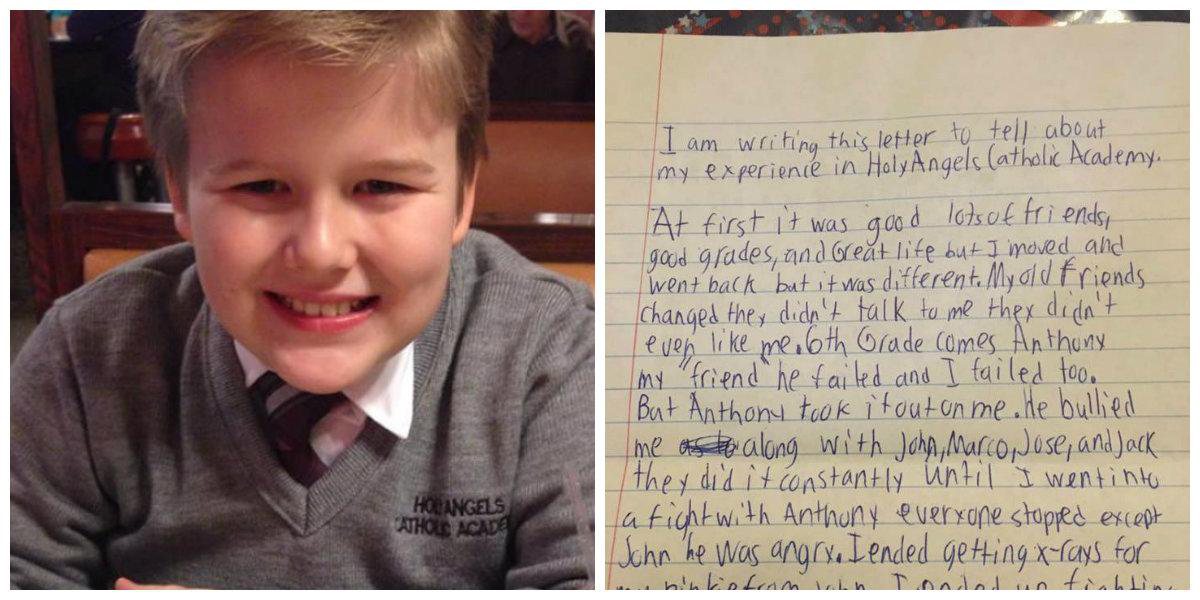 HOLY ANGELS
CATHOLIC ACADE
I am writing this letter to tell about
my experience in Holy Angels Catholic Academy.
At first it was good lots of friends,
good grades, and Great life but I moved and
went back but it was different. My old friends
changed they didn't talk to me they didn't
even like me. 6th Grade comes Anthony
my "friend" he failed and I failed too.
But Anthony took it out on me. He bullied
me along with John, Marco, Jose, and Jack
they did it constantly until I went into
a fight with Anthony everyone stopped except
John he was angry. I ended getting x-rays for
my pinkie from John. I ended up fightin